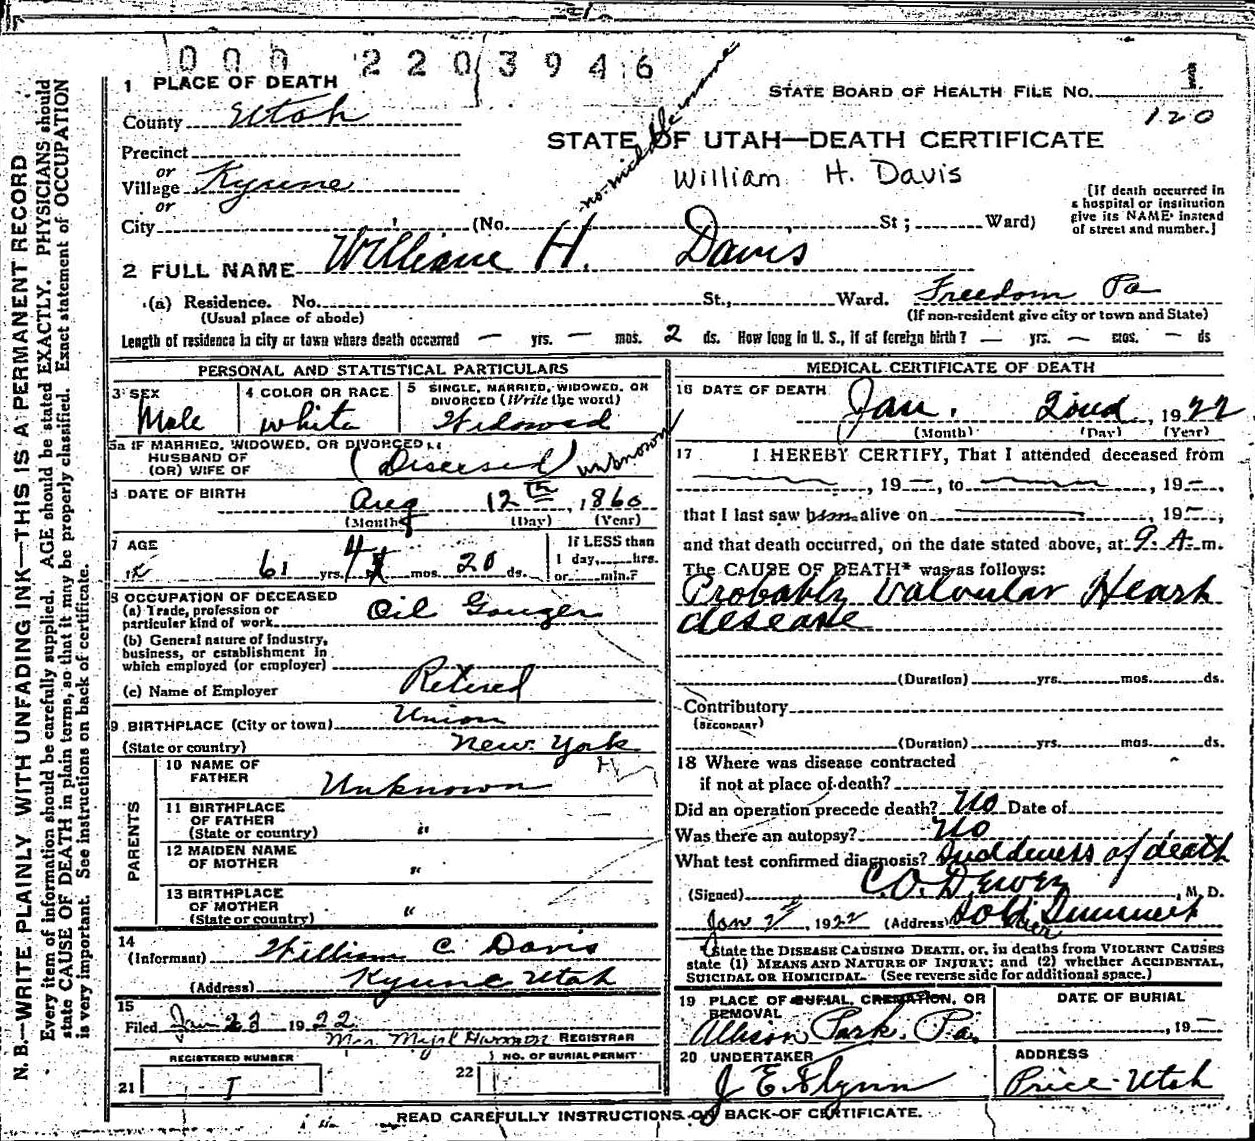 000 2203946
1 PLACE OF DEATH
STATE BOARD OF HEALTH FILE No. 1
120
County Utah
STATE OF UTAH—DEATH CERTIFICATE
no middle name
Precinct
or
Village Kyune
or
William H. Davis
[If death occurred in
a hospital or institution
give its NAME instead
of street and number.]
City (No. St; Ward)
2 FULL NAME William H. Davis
(a) Residence. No. St., Ward. Freedom Pa
(Usual place of abode) (If non-resident give city or town and State)
Length of residence in city or town where death occurred — yrs. — mos. 2 ds. How long in U. S., if of foreign birth? — yrs. — mos. — ds
PERSONAL AND STATISTICAL PARTICULARS
3 SEX
Male
4 COLOR OR RACE
white
5 SINGLE, MARRIED, WIDOWED, OR
DIVORCED (Write the word)
Widowed
5a IF MARRIED, WIDOWED, OR DIVORCED
HUSBAND OF
(OR) WIFE OF
(Disersed) unknown
6 DATE OF BIRTH
Aug 12th, 1860
(Month) (Day) (Year)
7 AGE
61 yrs. 4 mos. 20 ds.
If LESS than
1 day, hrs.
or min.?
8 OCCUPATION OF DECEASED
(a) Trade, profession or
particular kind of work Oil Gauger
(b) General nature of industry,
business, or establishment in
which employed (or employer)
(c) Name of Employer Retired
9 BIRTHPLACE (City or town) Union
(State or country) New York
PARENTS
10 NAME OF
FATHER Unknown
11 BIRTHPLACE
OF FATHER
(State or country) "
12 MAIDEN NAME
OF MOTHER "
13 BIRTHPLACE
OF MOTHER
(State or country) "
14
(Informant) William C Davis
(Address) Kyune Utah
15
Filed Jan 23 1922
Mrs. REGISTRAR
REGISTERED NUMBER
21 1
NO. OF BURIAL PERMIT
22
MEDICAL CERTIFICATE OF DEATH
16 DATE OF DEATH
Jan. 22nd, 1922
(Month) (Day) (Year)
17 I HEREBY CERTIFY, That I attended deceased from
, 19—, to , 19—,
that I last saw him alive on , 19—,
and that death occurred, on the date stated above, at 9 A. m.
The CAUSE OF DEATH* was as follows:
Probably Valvular Heart
desease
(Duration) yrs. mos. ds.
Contributory
(SECONDARY)
(Duration) yrs. mos. ds.
18 Where was disease contracted
if not at place of death?
Did an operation precede death? No Date of
Was there an autopsy? No
What test confirmed diagnosis? Suddeness of death
(Signed) , M. D.
Jan , 1922 (Address) Soldier Summit
*State the DISEASE CAUSING DEATH, or, in deaths from VIOLENT CAUSES
state (1) MEANS AND NATURE OF INJURY; and (2) whether ACCIDENTAL,
SUICIDAL OR HOMICIDAL. (See reverse side for additional space.)
19 PLACE OF BURIAL, CREMATION, OR
REMOVAL
Allison Park, Pa.
DATE OF BURIAL
, 19—
20 UNDERTAKER
J E Flynn
ADDRESS
Price Utah
READ CAREFULLY INSTRUCTIONS ON BACK OF CERTIFICATE.
N. B.—WRITE PLAINLY WITH UNFADING INK—THIS IS A PERMANENT RECORD
Every item of information should be carefully supplied. AGE should be stated EXACTLY. PHYSICIANS should
state CAUSE OF DEATH in plain terms, so that it may be properly classified. Exact statement of OCCUPATION
is very important. See instructions on back of certificate.